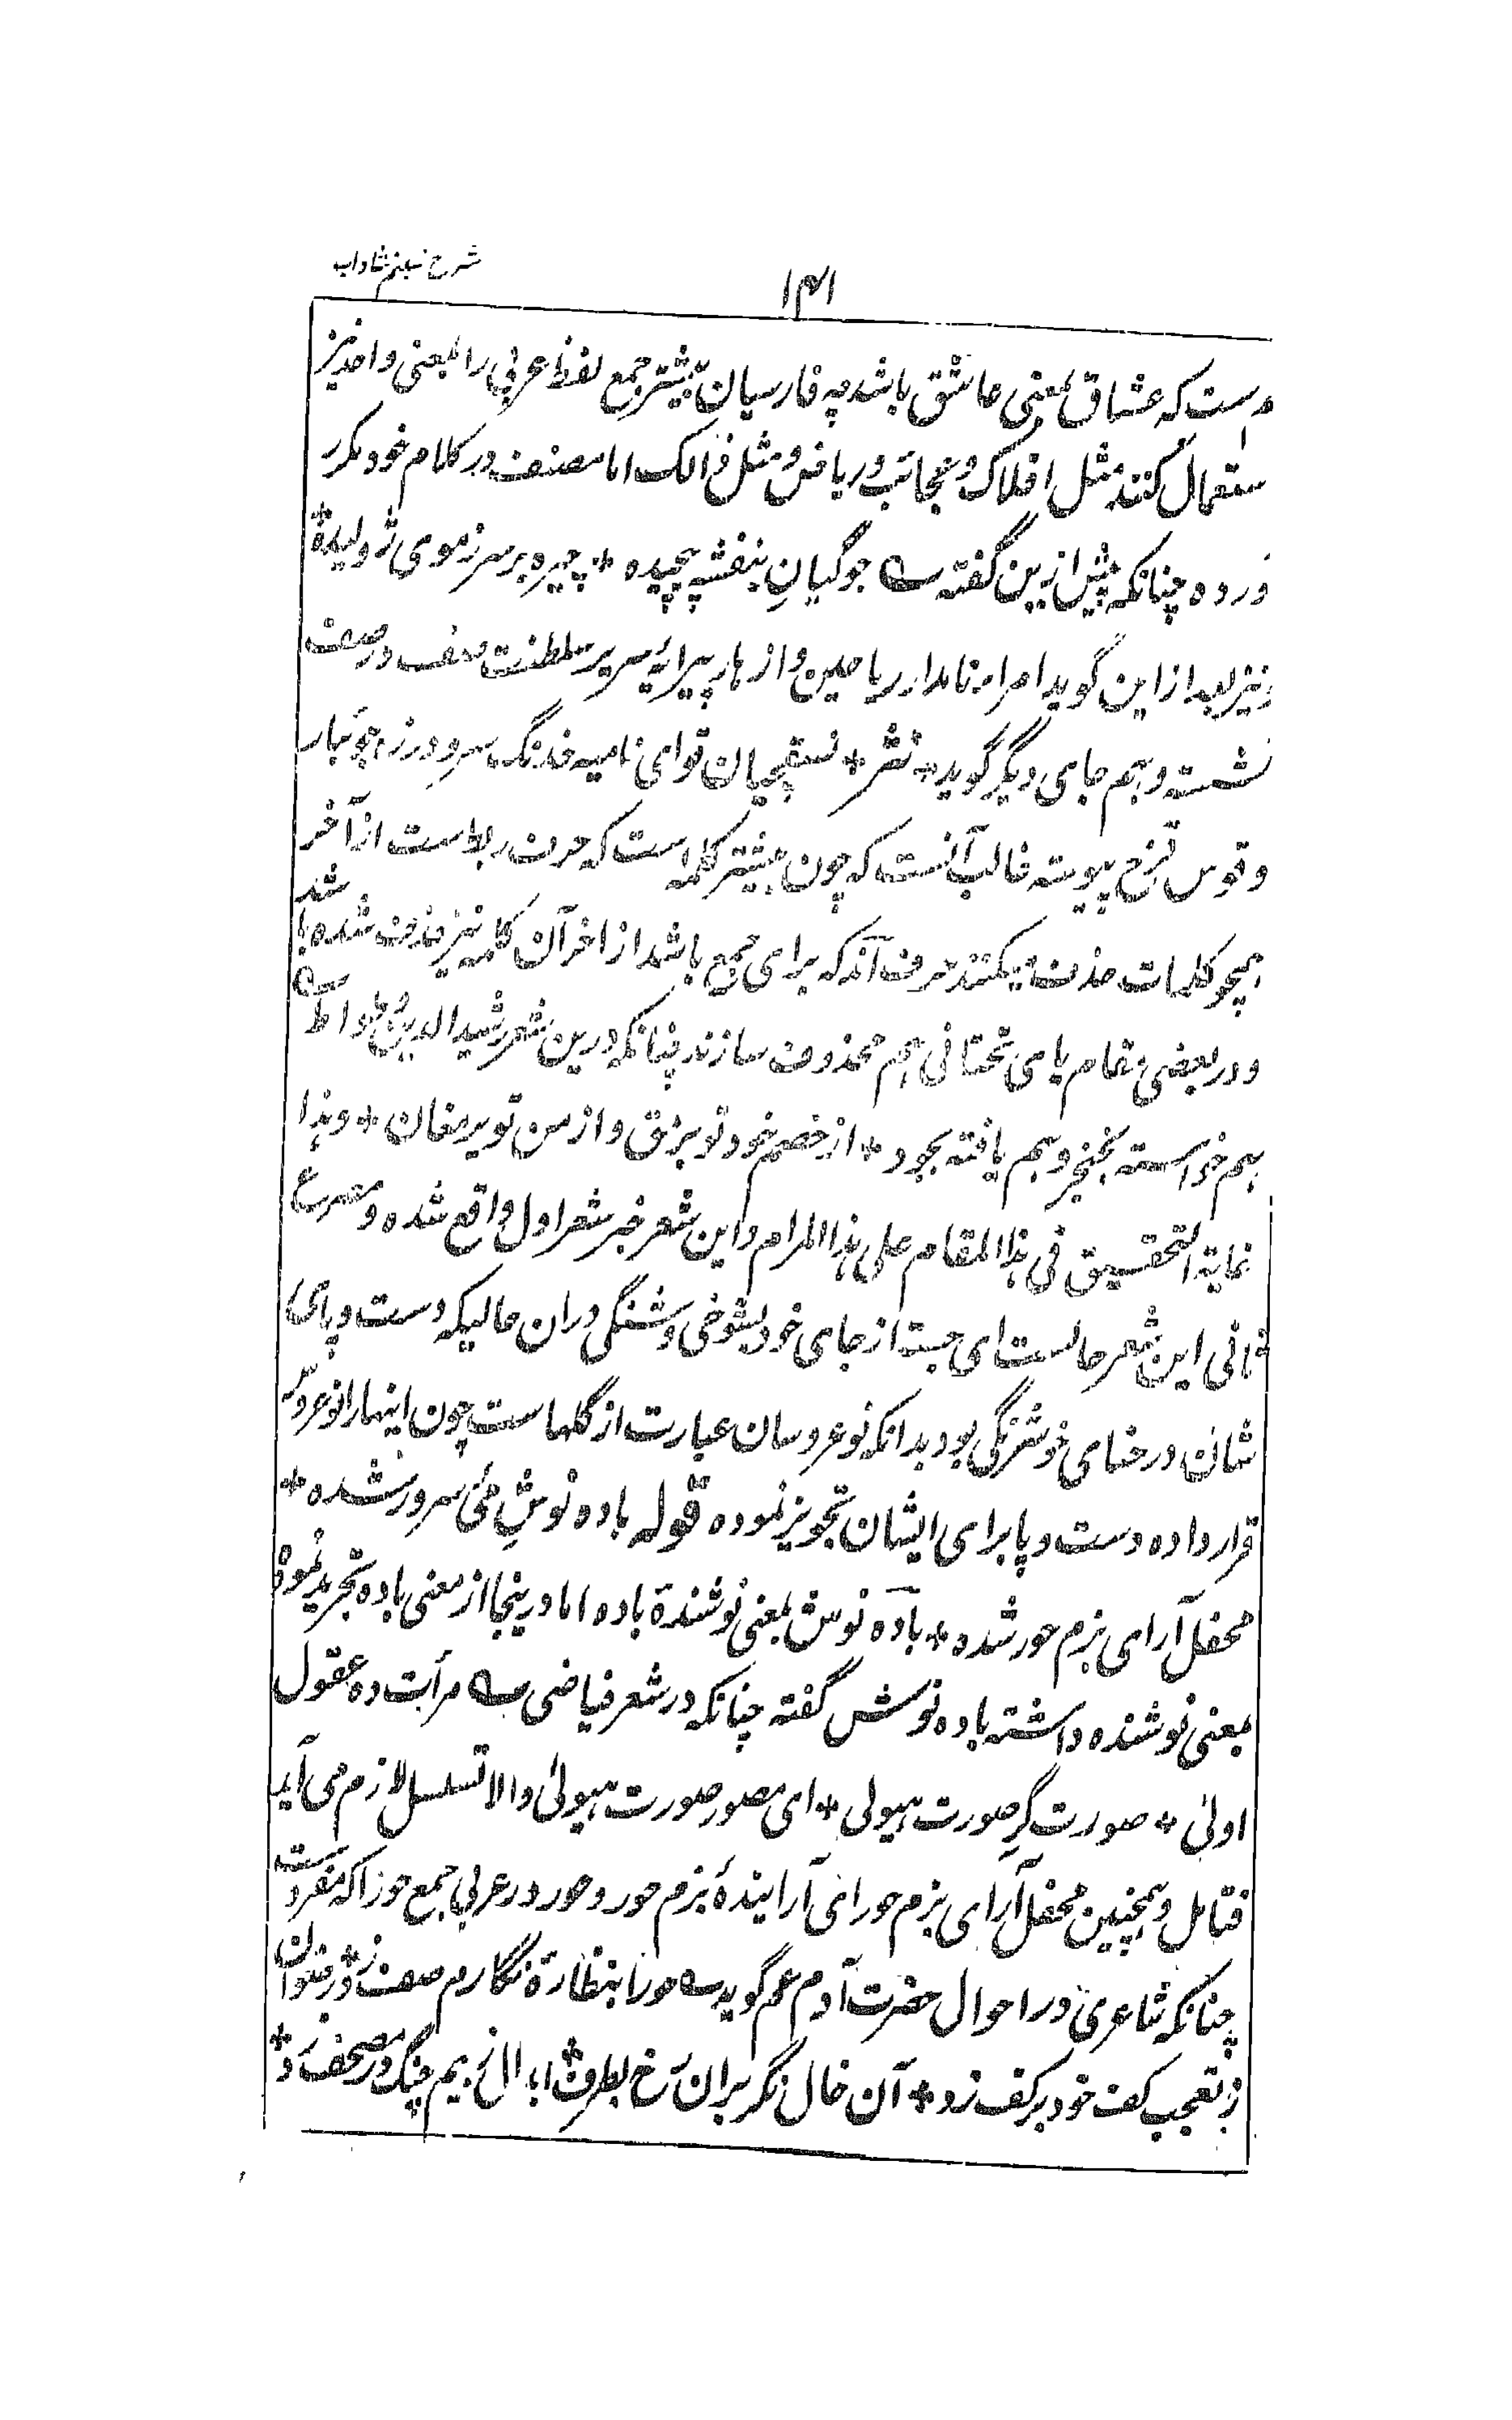 شرح شبنم شاداب
۱۴۱
ست که عشاق بمعنی عاشق باشد چه فارسیان بیشتر جمع لفظ عربی را بمعنی واحد نیز
ستعمال کنند مثل افلاک و عجائب و ریاض و مثل ذالک اما مصنف در کلام خود مکرر
ورده چنانکه پیش ازین گفته ؎ جوگیان بنفشه پیچیده * چیره بر سر ز موی ژولیده *
ونیز بعد ازاین گوید امراء نامدار ریاحین و ازهار پیرایه سریر سلطنت صف در صف
نشسته و هم جای دیگر گوید * نثر * نسقچیان قوای نامیه خدنگ سرو در زه جوئبار
و قوس قزح پیوسته غالب آنست که چون بیشتر کلمه است که حرف ربط است از آخر
همچو کلمات حذف میکنند حرف آند که برای جمع باشد از اخر آن کلمه نیز حذف شده باشد
و در بعضی مقام یای تحتانی هم محذوف سازند چنانکه درین شعر رشید الدین وطواط ؎
هم خواسته بخنجر و هم یافته بجود * از خصم خود تو بزق و از من تو یرمغان * و هذا
نهایة التحقیق فی هذا المقام علی هذا المرام و این شعر خبر شعر اول واقع شده و مصرع
ثانی این شعر حالست ای جسته از جای خود بشوخی و شنگی دران حالیکه دست و پای
شان در حنای خوشرنگی بود بدانکه نوعروسان عبارت از گلهاست چون اینها را نوعروس
قرار داده دست و پا برای ایشان تجویز نموده قوله باده نوش مئ سرور شده *
محفل آرای بزم حور شده * باده نوش بمعنی نوشندهٔ باده اما درینجا از معنی باده تجرید نموده
بمعنی نوشنده داشته باده نوش گفته چنانکه در شعر فیاضی ؎ مرآت ده عقول
اولی * صورت گر صورت هیولی * ای مصور صورت هیولی والا تسلسل لازم می آید
فتامل و همچنین محفل آرای بزم حور ای آرایندهٔ بزم حور و حور در عربی جمع حورا که مفردست
چنانکه شاعری در احوال حضرت آدم عم گوید ؎ حورا بنظارهٔ نگارم صف زد * رضوان
ز تعجب کف خود بر کف زد * آن خال بران رخ ابدال ز بیم چنگ در مصحف زد *